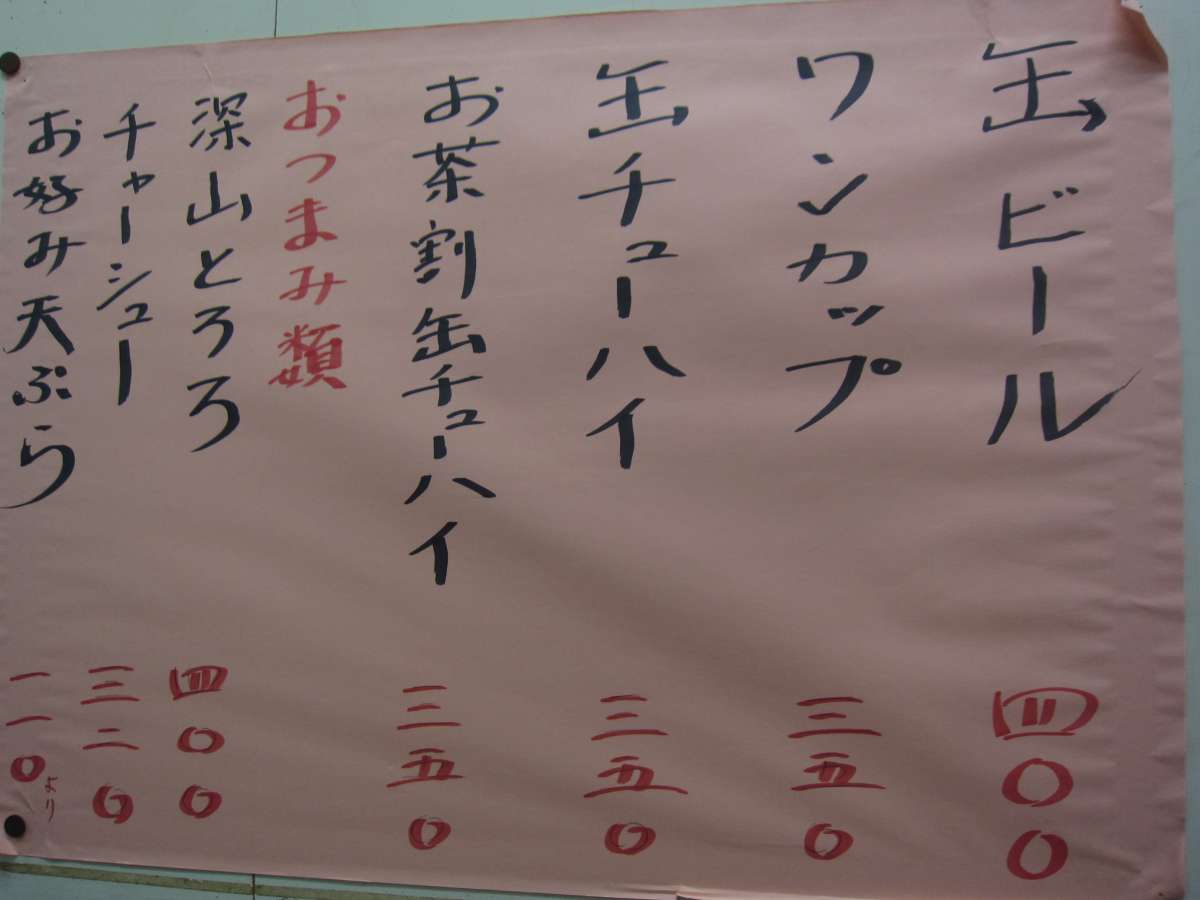 缶ビール 四〇〇
ワンカップ 三五〇
缶チューハイ 三五〇
お茶割缶チューハイ 三五〇
おつまみ類
深山とろろ 四〇〇
チャーシュー 三二〇
お好み天ぷら 一一〇より